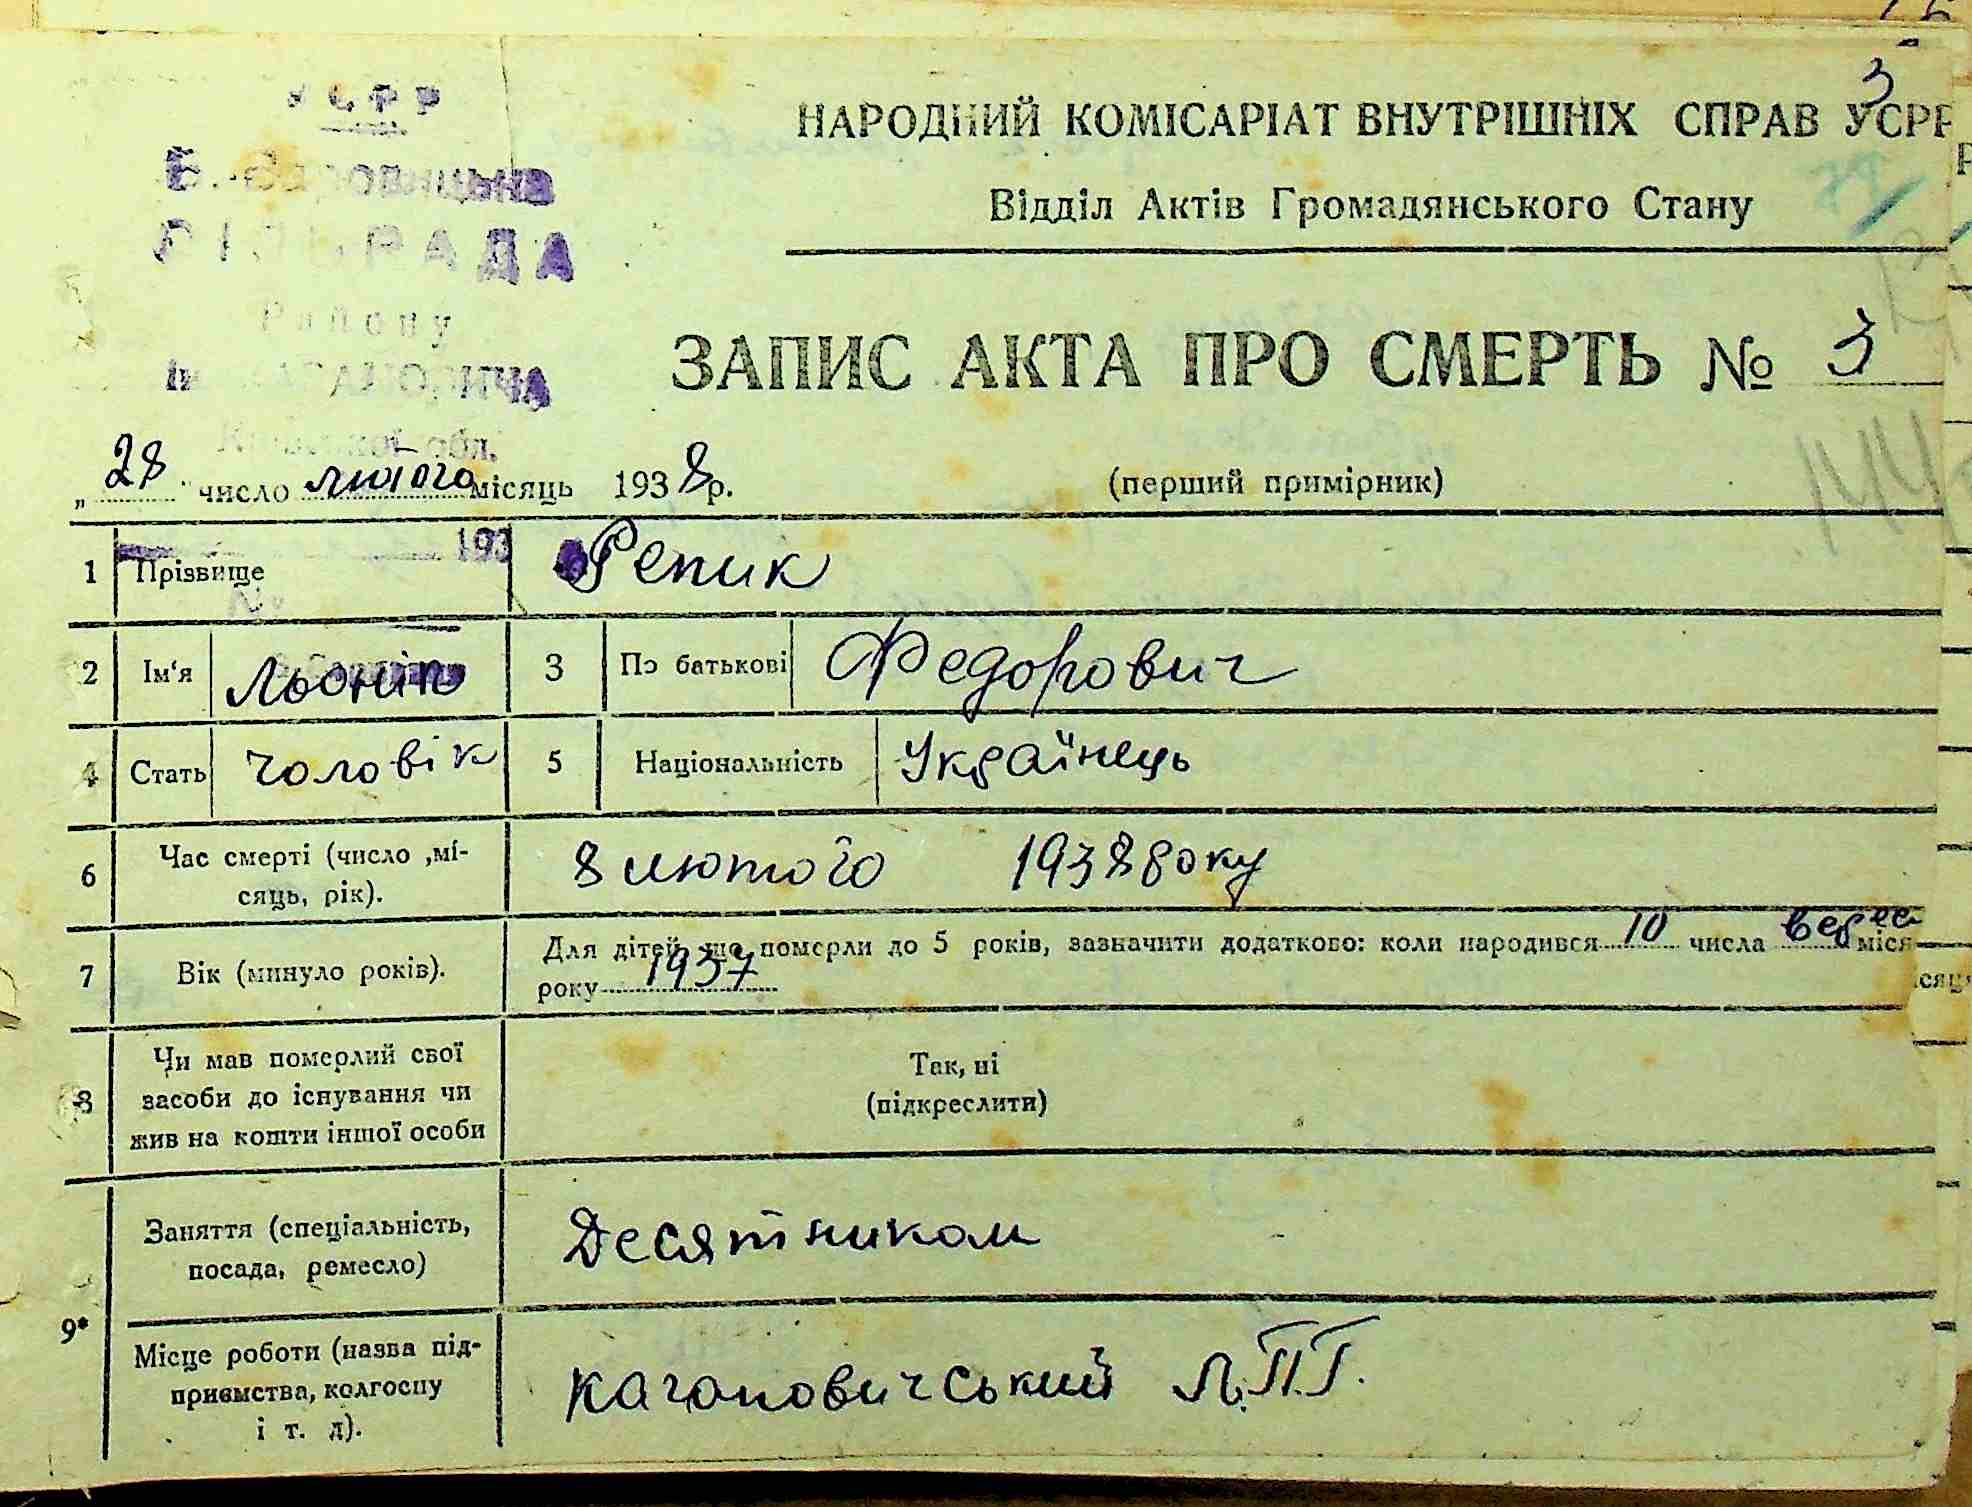 3
УСРР
НАРОДНИЙ КОМІСАРІАТ ВНУТРІШНІХ СПРАВ УСРР
Відділ Актів Громадянського Стану
РАДА
Району
ім. КАГАНОВИЧА
Київської обл.
ЗАПИС АКТА ПРО СМЕРТЬ № 3
144
„28" число лютого місяць 1938 р.
(перший примірник)
193
1 Прізвище Репик
2 Ім‘я Льонік 3 По батькові Федорович
4 Стать чоловік 5 Національність Українець
6 Час смерті (число ,мі-
сяць, рік).
8 лютого 1938 року
7 Вік (минуло років).
Для дітей, що померли до 5 років, зазначити додатково: коли народився 10 числа верес міся
року 1937
8 Чи мав померлий свої
засоби до існування чи
жив на кошти іншої особи
Так, ні
(підкреслити)
9*
Заняття (спеціальність,
посада, ремесло)
Десятником
Місце роботи (назва під-
приємства, колгоспу
і т. д).
Кагановичський Л.П.Г.